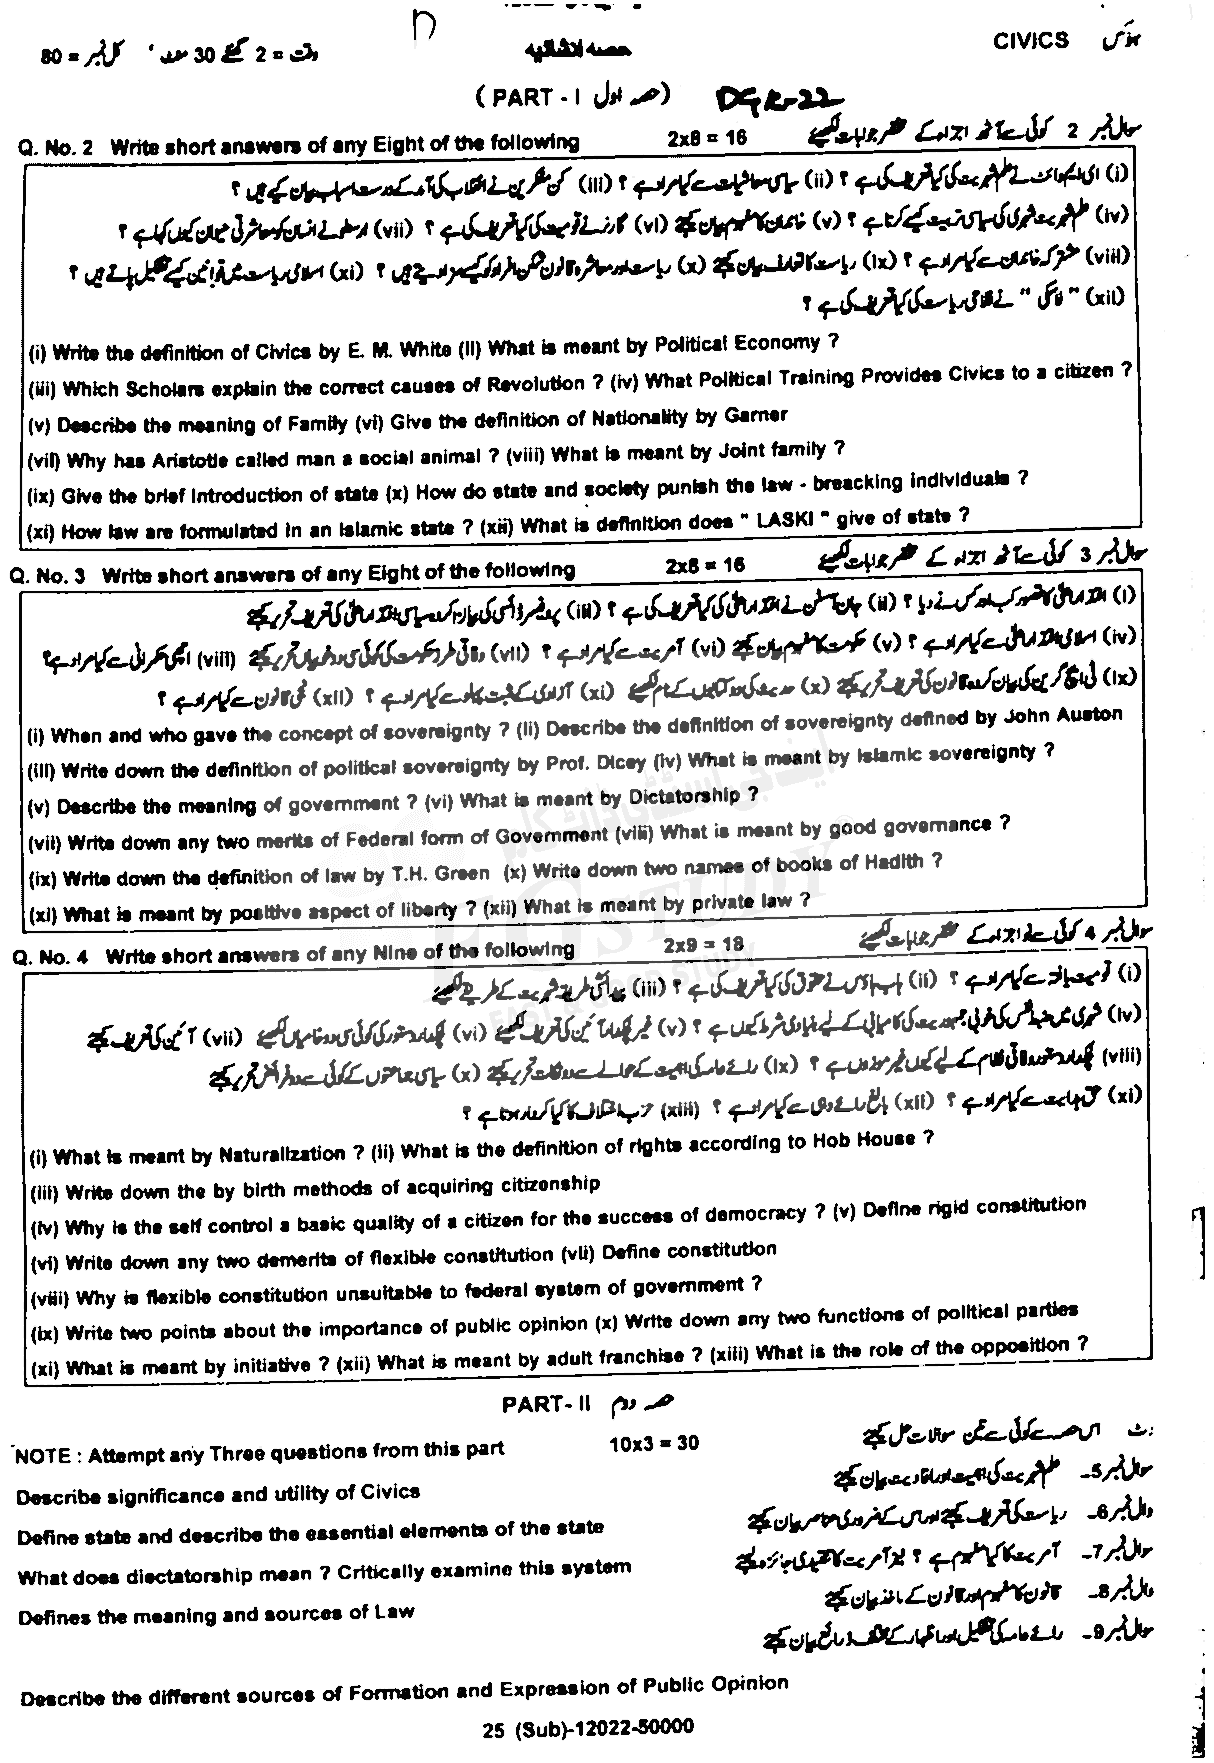 n
CIVICS
حصہ انشائیہ
وقت = 2 گھنٹے 30 منٹ ' کل نمبر = 80
(PART - I حصہ اول)
DGK-22
Q. No. 2 Write short answers of any Eight of the following 2x8 = 16 سوال نمبر 2 کوئی سے آٹھ اجزاء کے مختصر جوابات لکھیے
(i) ای ایم وائٹ نے علم شہریت کی کیا تعریف کی ہے ؟ (ii) سیاسی معاشیات سے کیا مراد ہے ؟ (iii) کن مفکرین نے انقلاب کی آمد کے درست اسباب بیان کیے ہیں ؟
(iv) علم شہریت شہری کی سیاسی تربیت کیسے کرتا ہے ؟ (v) خاندان کا مفہوم بیان کیجئے (vi) گارنر نے قومیت کی کیا تعریف کی ہے ؟ (vii) ارسطو نے انسان کو معاشرتی حیوان کیوں کہا ہے ؟
(viii) مشترکہ خاندان سے کیا مراد ہے ؟ (ix) ریاست کا تعارف بیان کیجئے (x) ریاست اور معاشرہ قانون شکن افراد کو کیسے سزا دیتے ہیں ؟ (xi) اسلامی ریاست میں قوانین کیسے تشکیل پاتے ہیں ؟
(xii) " لاسکی " نے ریاست کی کیا تعریف کی ہے ؟
(i) Write the definition of Civics by E. M. White (II) What is meant by Political Economy ?
(iii) Which Scholars explain the correct causes of Revolution ? (iv) What Political Training Provides Civics to a citizen ?
(v) Describe the meaning of Family (vi) Give the definition of Nationality by Garner
(vii) Why has Aristotle called man a social animal ? (viii) What is meant by Joint family ?
(ix) Give the brief Introduction of state (x) How do state and society punish the law - breacking individuals ?
(xi) How law are formulated in an Islamic state ? (xii) What is definition does " LASKI " give of state ?
Q. No. 3 Write short answers of any Eight of the following 2x8 = 16 سوال نمبر 3 کوئی سے آٹھ اجزاء کے مختصر جوابات لکھیے
(i) اقتدار اعلیٰ کا تصور کب اور کس نے دیا ؟ (ii) جان آسٹن نے اقتدار اعلیٰ کی کیا تعریف کی ہے ؟ (iii) پروفیسر ڈائسی کی بیان کردہ سیاسی اقتدار اعلیٰ کی تعریف تحریر کیجئے
(iv) اسلامی اقتدار اعلیٰ سے کیا مراد ہے ؟ (v) حکومت کا مفہوم بیان کیجئے (vi) آمریت سے کیا مراد ہے ؟ (vii) وفاقی طرز حکومت کی کوئی سی دو خوبیاں تحریر کیجئے (viii) اچھی حکمرانی سے کیا مراد ہے ؟
(ix) ٹی ایچ گرین کی بیان کردہ قانون کی تعریف تحریر کیجئے (x) حدیث کی دو کتابوں کے نام لکھیے (xi) آزادی کے مثبت پہلو سے کیا مراد ہے ؟ (xii) نجی قانون سے کیا مراد ہے ؟
(i) When and who gave the concept of sovereignty ? (ii) Describe the definition of sovereignty defined by John Auston
(iii) Write down the definition of political sovereignty by Prof. Dicey (iv) What is meant by Islamic sovereignty ?
(v) Describe the meaning of government ? (vi) What is meant by Dictatorship ?
(vii) Write down any two merits of Federal form of Government (viii) What is meant by good governance ?
(ix) Write down the definition of law by T.H. Green (x) Write down two names of books of Hadith ?
(xi) What is meant by positive aspect of liberty ? (xii) What is meant by private law ?
Q. No. 4 Write short answers of any Nine of the following 2x9 = 18 سوال نمبر 4 کوئی سے نو اجزاء کے مختصر جوابات لکھیے
(i) قومیت یافتہ سے کیا مراد ہے ؟ (ii) ہاب ہاؤس نے حقوق کی کیا تعریف کی ہے ؟ (iii) پیدائشی طریقہ شہریت کے طریقے لکھیے
(iv) شہری میں ضبط نفس کی خوبی جمہوریت کی کامیابی کے لیے بنیادی شرط کیوں ہے ؟ (v) غیر لچکدار آئین کی تعریف لکھیے (vi) لچکدار دستور کی کوئی سی دو خامیاں لکھیے (vii) آئین کی تعریف کیجئے
(viii) لچکدار دستور وفاقی نظام کے لیے کیوں غیر موزوں ہے ؟ (ix) رائے عامہ کی اہمیت کے حوالے سے دو نکات تحریر کیجئے (x) سیاسی جماعتوں کے کوئی سے دو فرائض تحریر کیجئے
(xi) حق ہدایت سے کیا مراد ہے ؟ (xii) بالغ رائے دہی سے کیا مراد ہے ؟ (xiii) حزب اختلاف کا کیا کردار ہوتا ہے ؟
(i) What is meant by Naturalization ? (ii) What is the definition of rights according to Hob House ?
(iii) Write down the by birth methods of acquiring citizenship
(iv) Why is the self control a basic quality of a citizen for the success of democracy ? (v) Define rigid constitution
(vi) Write down any two demerits of flexible constitution (vii) Define constitution
(viii) Why is flexible constitution unsuitable to federal system of government ?
(ix) Write two points about the importance of public opinion (x) Write down any two functions of political parties
(xi) What is meant by initiative ? (xii) What is meant by adult franchise ? (xiii) What is the role of the opposition ?
PART- II حصہ دوم
NOTE : Attempt any Three questions from this part 10x3 = 30 اس حصہ سے کوئی سے تین سوالات حل کیجئے
Describe significance and utility of Civics سوال نمبر 5- علم شہریت کی اہمیت اور افادیت بیان کیجئے
Define state and describe the essential elements of the state سوال نمبر 6- ریاست کی تعریف کیجئے اور اس کے ضروری عناصر بیان کیجئے
What does diectatorship mean ? Critically examine this system سوال نمبر 7- آمریت کا کیا مفہوم ہے ؟ نیز آمریت کا تنقیدی جائزہ لیجئے
Defines the meaning and sources of Law سوال نمبر 8- قانون کا مفہوم اور قانون کے ماخذ بیان کیجئے
سوال نمبر 9- رائے عامہ کی تشکیل اور اظہار کے مختلف ذرائع بیان کیجئے
Describe the different sources of Formation and Expression of Public Opinion
25 (Sub)-12022-50000